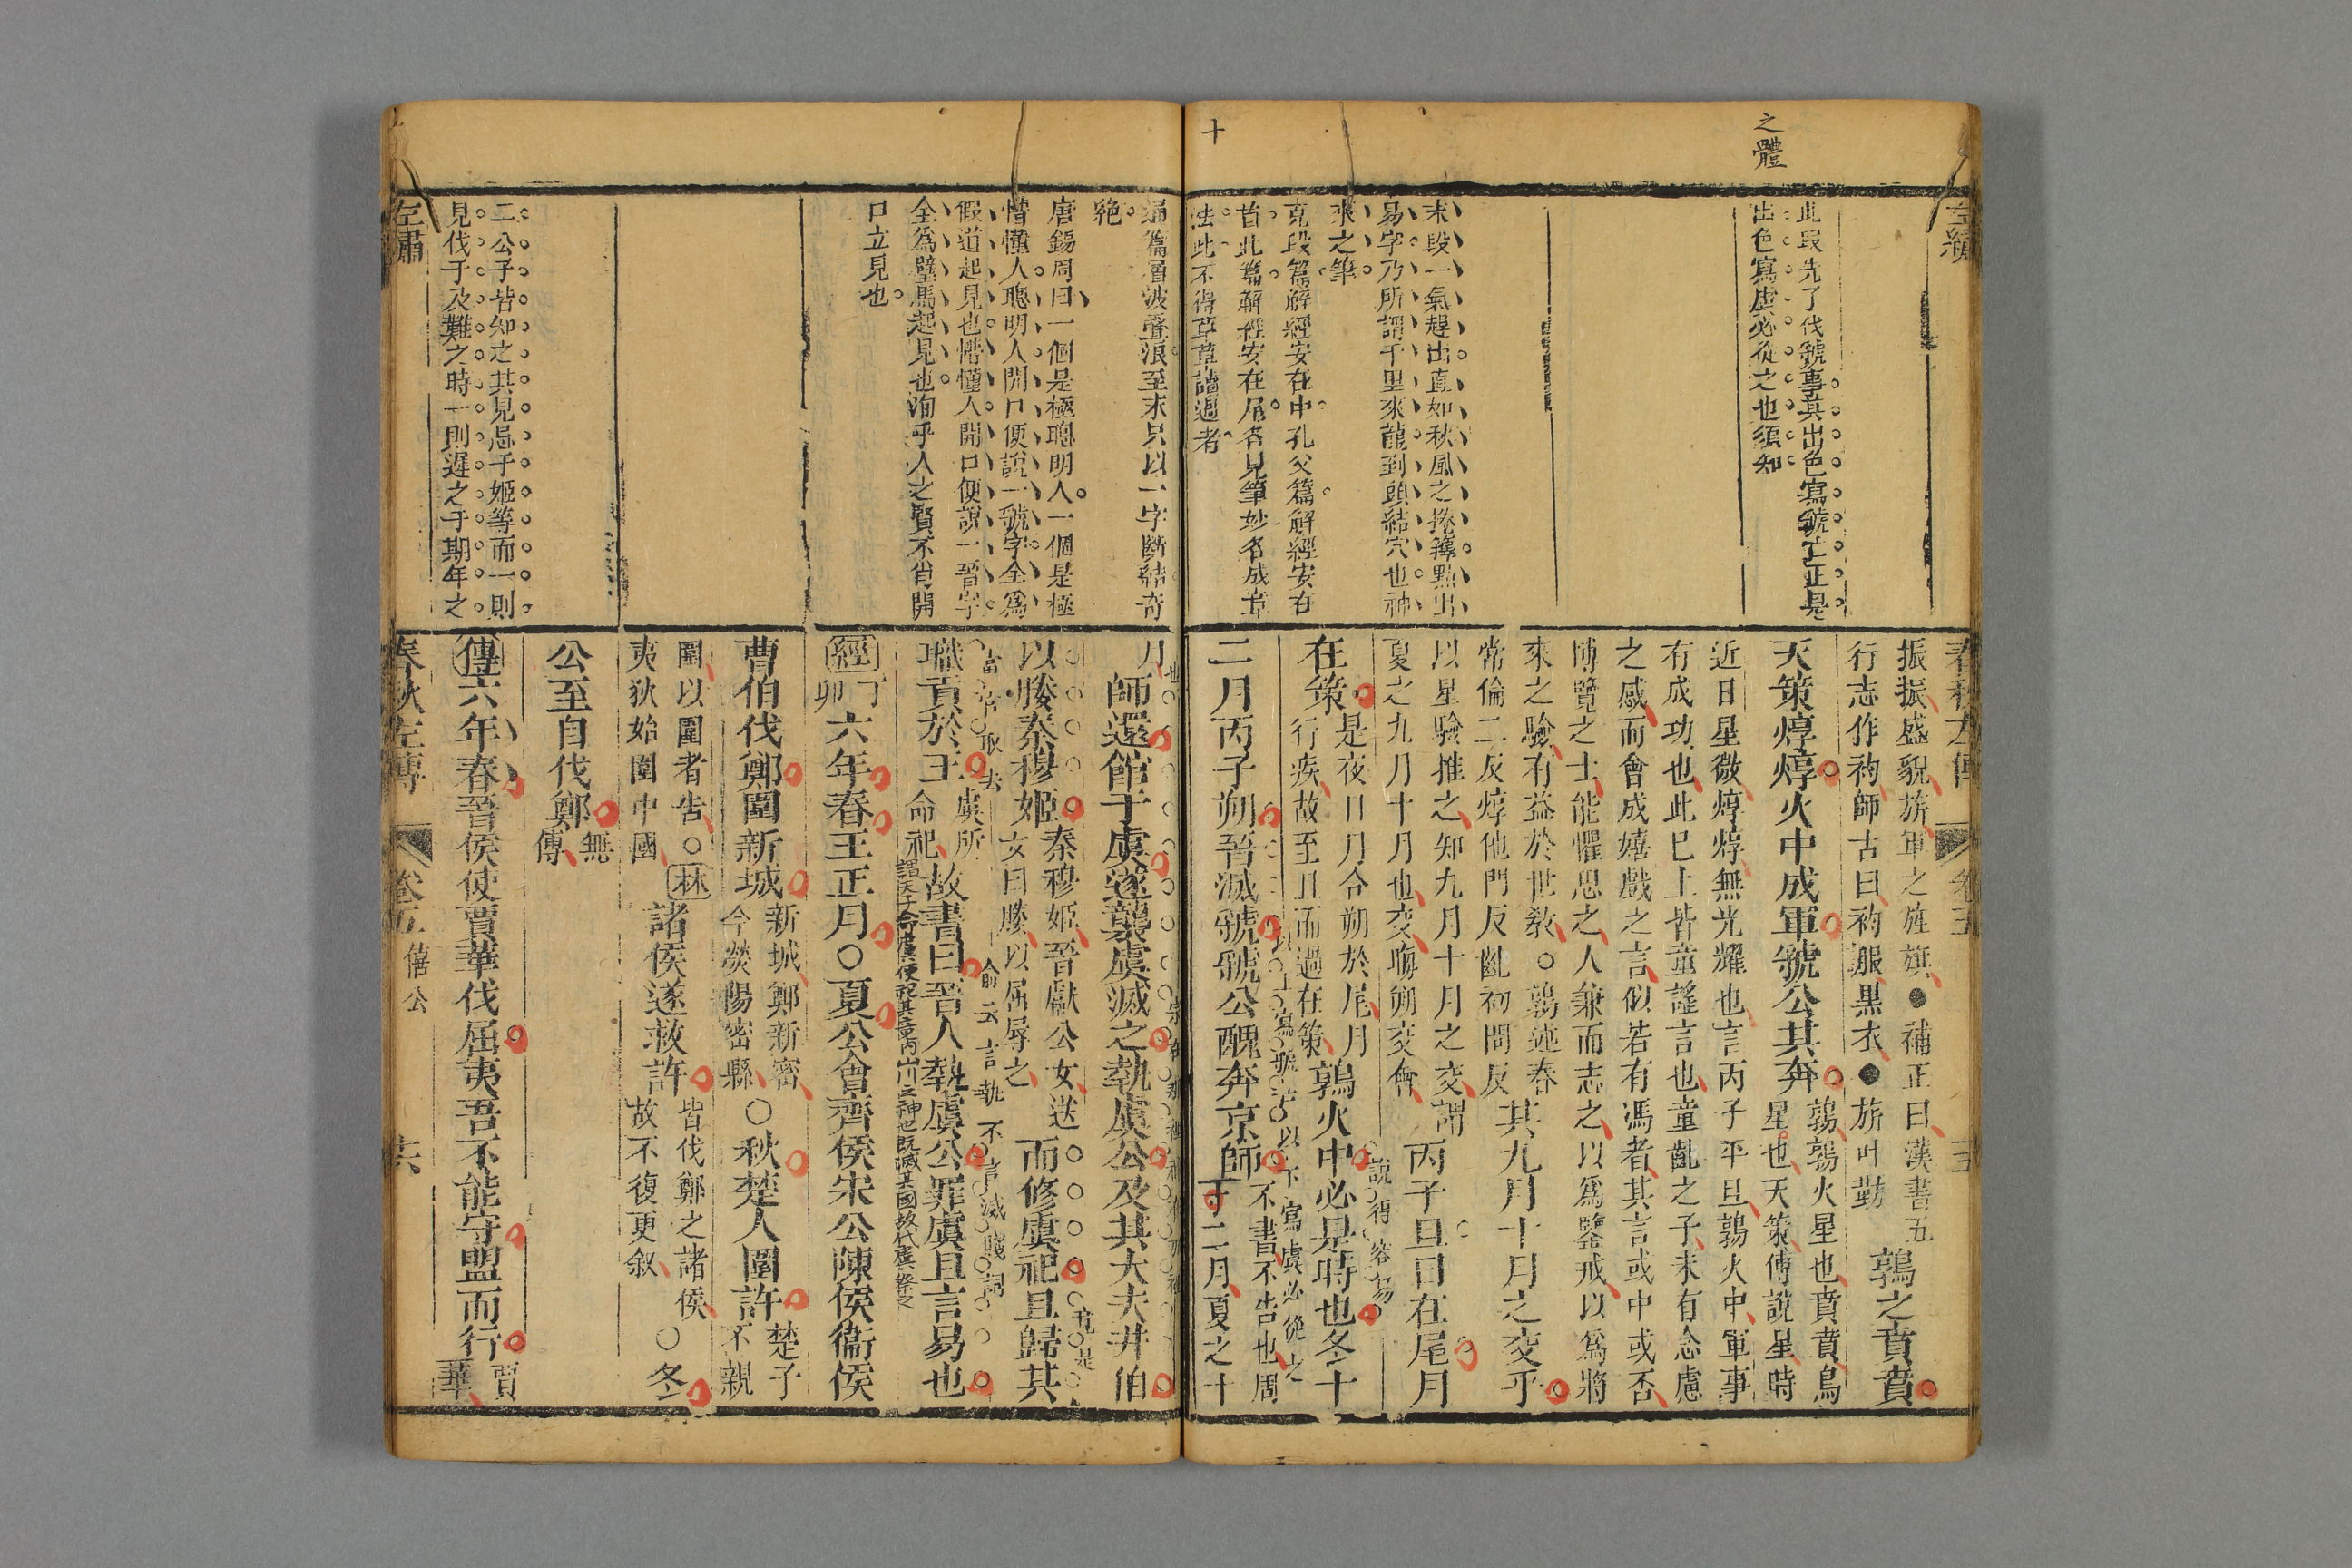 之體
此段先了伐虢事其出色寫虢亡正是
出色寫虞必從之也須知
末段一氣趕出直如秋風之捲籜點出
易字乃所謂千里來龍到頭結穴也神
來之筆
克段篇解經安在中孔父篇解經安在
首此篇解經安在尾各見筆妙各成章
法此不得草草讀過者
十
春秋左傳
卷五
振振盛貌旂軍之旌旗●補正曰漢書五
行志作袀師古曰袀服黑衣●旂叶勤
鶉之賁賁
天策焞焞火中成軍虢公其奔
鶉鶉火星也賁賁鳥
星也天策傅說星時
近日星微焞焞無光耀也言丙子平旦鶉火中軍事
有成功也此已上皆童謠言也童齔之子未有念慮
之感而會成嬉戲之言似若有馮者其言或中或否
博覽之士能懼思之人兼而志之以爲鑒戒以爲將
來之驗有益於世教○鶉述春
常倫二反焞他門反齔初問反
其九月十月之交乎
以星驗推之知九月十月之交謂
夏之九月十月也交晦朔交會
丙子旦日在尾月
說得容易
在策
是夜日月合朔於尾月
行疾故至旦而過在策
鶉火中必是時也冬十
二月丙子朔晉滅虢虢公醜奔京師
以上寫虢亡以下寫虞必從之
不書不告也周
十二月夏之十
通篇層波疊浪至末只以一字斷結奇
絕
唐錫周曰一個是極聰明人一個是極
懵懂人聰明人開口便說一虢字全爲
假道起見也懵懂人開口便說一晉字
全爲璧馬起見也洵乎人之賢不肖開
口立見也
二公子皆知之其見忌于姬等而一則
見伐于及難之時一則遲之于期年之
左繡
月
師還館于虞遂襲虞滅之執虞公及其大夫井伯
以媵秦穆姬
秦穆姬晉獻公女送
女曰媵以屈辱之
而修虞祀且歸其
職貢於王
虞所
命祀
謂天子命虞使祀其竟內山川之神也既滅其國故代虞祭之
故書曰晉人執虞公罪虞且言易也
俞云言執不言滅賤詞
經
丁
卯
六年春王正月○夏公會齊侯宋公陳侯衞侯
曹伯伐鄭圍新城
新城鄭新密
今滎陽密縣
○秋楚人圍許
楚子
不親
圍以圍者告○
夷狄始圍中國
林
諸侯遂救許
皆伐鄭之諸侯
故不復更叙
○冬
公至自伐鄭
無
傳
傳
六年春晉侯使賈華伐屈夷吾不能守盟而行
賈
華
春秋左傳
卷五
僖公
六